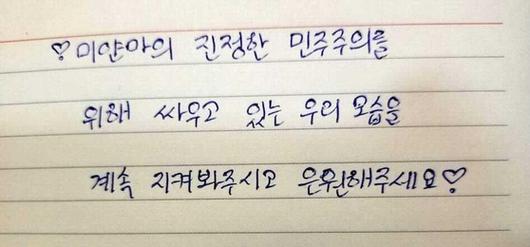 ♡미얀마의 진정한 민주주의를
위해 싸우고 있는 우리 모습을
계속 지켜봐주시고 응원해주세요♡